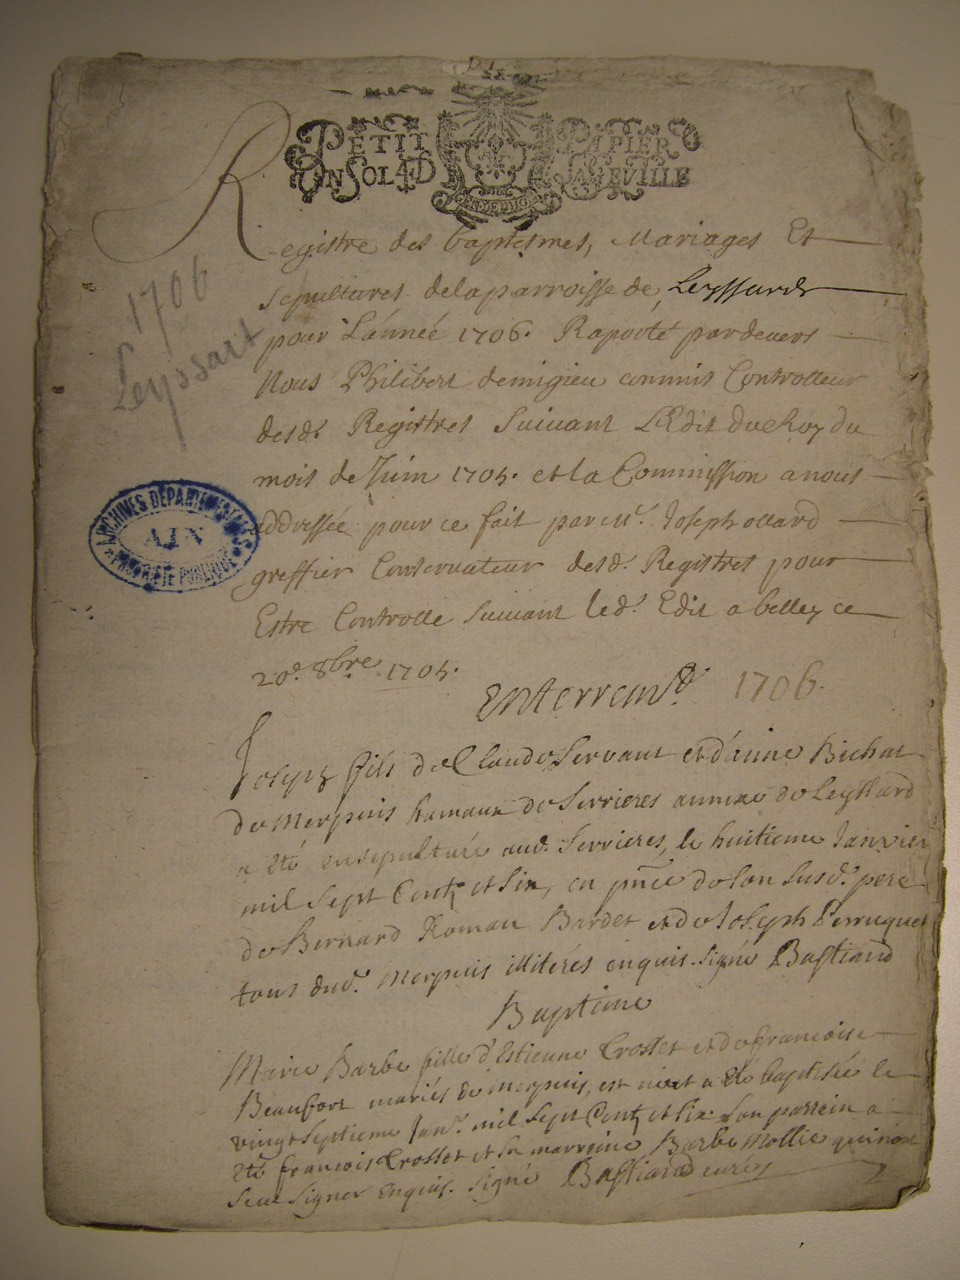 PETIT PAPIER
UN SOL 4 D LA FEVILLE
Registre des baptesmes, Mariages Et
sepultures de la parroisse de Leyssard
pour L'année 1706. Raporté pardevers
Nous Philibert demigieu commis Controlleur
desd. Registres Suivant L'Edit du Roy du
mois de Juin 1705. et la Commission a nous
addressée pour ce fait par Mr. Joseph ollard
greffier Conservateur desd. Registres pour
Estre Controlle suivant led. Edit a belley ce
20e. 8bre 1705.
1706
Leyssart
ARCHIVES DEPARTEMENTALES
AIN
PROPRIETE PUBLIQUE
Enterremt. 1706.
Joseph fils de Claude Servant et d'anne Bichat
de Merpuis hameau de Serrieres annexe de Leyssard
a eté ensepulturé aud. Serrieres, le huitieme Janvier
mil Sept Centz et Six, en pnce de son susd. pere
de Bernard Roman Bardet et de Joseph Perruquet
tous dud. Merpuis illiterés enquis. signé Bastiand
Baptême
Marie Barbe fille d'Estienne Crosset et de francoise
Beaufort mariés de merpuis, est née et a eté baptisée le
vingt Septieme Janr. mil Sept Centz et Six. Son parrein a
eté francois Crosset et sa marreine Barbe Mollie qui n'ont
sceu signer enquis. Signé Bastiand curé